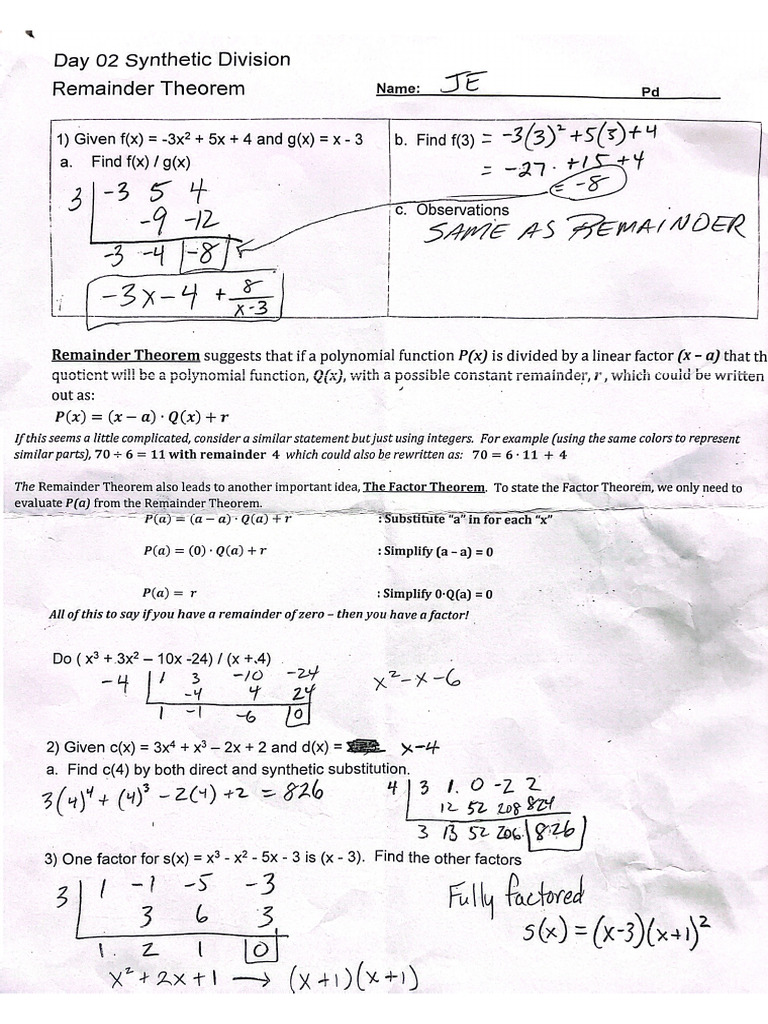 Day 02 Synthetic Division
Remainder Theorem
Name: JE Pd
1) Given f(x) = -3x² + 5x + 4 and g(x) = x - 3
a. Find f(x) / g(x)
3 | -3 5 4
-9 -12
-3 -4 -8
-3x-4 + 8/(x-3)
b. Find f(3) = -3(3)² +5(3)+4
= -27 +15 +4
= -8
c. Observations
SAME AS REMAINDER
Remainder Theorem suggests that if a polynomial function P(x) is divided by a linear factor (x – a) that th
quotient will be a polynomial function, Q(x), with a possible constant remainder, r , which could be written
out as:
P(x) = (x − a) · Q(x) + r
If this seems a little complicated, consider a similar statement but just using integers. For example (using the same colors to represent
similar parts), 70 ÷ 6 = 11 with remainder 4 which could also be rewritten as: 70 = 6 · 11 + 4
The Remainder Theorem also leads to another important idea, The Factor Theorem. To state the Factor Theorem, we only need to
evaluate P(a) from the Remainder Theorem.
P(a) = (a − a) · Q(a) + r : Substitute “a” in for each “x”
P(a) = (0) · Q(a) + r : Simplify (a – a) = 0
P(a) = r : Simplify 0·Q(a) = 0
All of this to say if you have a remainder of zero – then you have a factor!
Do ( x³ + 3x² – 10x -24) / (x + 4)
-4 | 1 3 -10 -24
-4 4 24
1 -1 -6 0
x²-x-6
2) Given c(x) = 3x⁴ + x³ – 2x + 2 and d(x) = x-4
a. Find c(4) by both direct and synthetic substitution.
3(4)⁴ + (4)³ - 2(4) +2 = 826
4 | 3 1 0 -2 2
12 52 208 824
3 13 52 206 826
3) One factor for s(x) = x³ - x² - 5x - 3 is (x - 3). Find the other factors
3 | 1 -1 -5 -3
3 6 3
1 2 1 0
x² + 2x + 1 → (x+1)(x+1)
Fully factored
s(x) = (x-3)(x+1)²